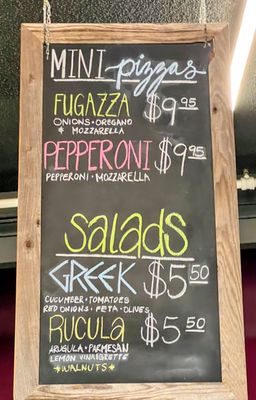 MINI pizzas
FUGAZZA $9.95
ONIONS · OREGANO
& MOZZARELLA
PEPPERONI $9.95
PEPPERONI · MOZZARELLA
Salads
GREEK $5.50
CUCUMBER · TOMATOES
RED ONIONS · FETA · OLIVES
RUCULA $5.50
ARUGULA · PARMESAN
LEMON VINAIGRETTE
*WALNUTS*